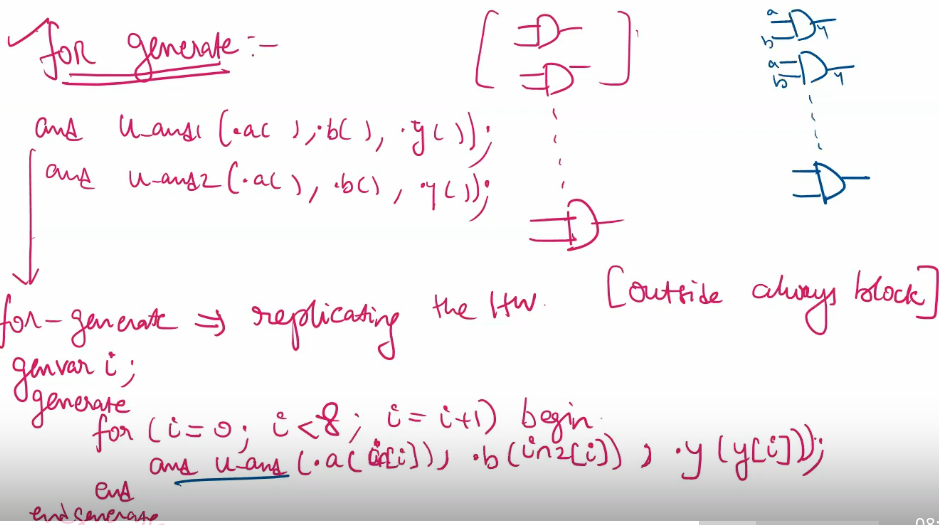 for generate :-
and u_and1 (.a( ), .b( ), .y( ));
and u_and2 (.a( ), .b( ), .y( ));
a
b
y
a
b
y
for-generate ⇒ replicating the HW. [outside always block]
genvar i;
generate
for (i=0; i<8; i=i+1) begin
and u_and (.a(in[i]), .b(in2[i]), .y(y[i]));
end
endgenerate